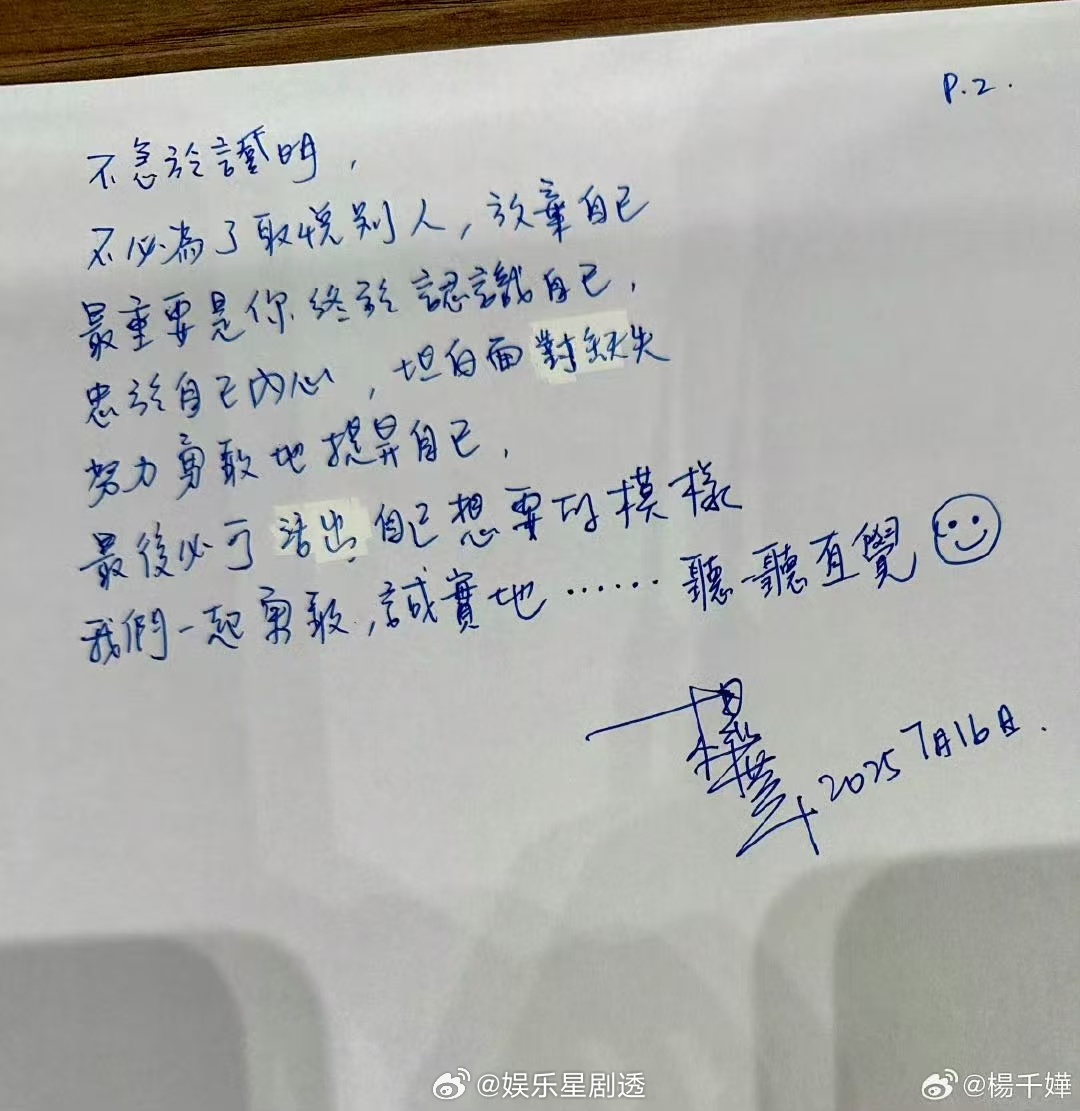 P.2.
不急於證明，
不必為了取悅別人，放棄自己
最重要是你終於認識自己，
忠於自己內心，坦白面對缺失
努力勇敢地提昇自己，
最後必可活出自己想要的模樣
我們一起勇敢，誠實地……聽聽直覺
2025 7月16日.
@娱乐星剧透
@楊千嬅